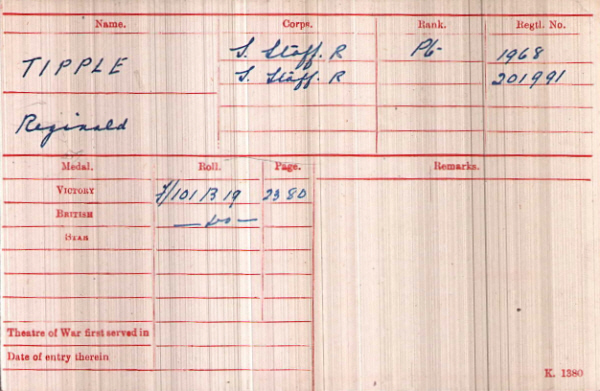 Name. Corps. Rank. Regtl. No.
TIPPLE S. Staff. R Pte 1968
S. Staff. R 201991
Reginald
Medal. Roll. Page. Remarks.
VICTORY F/101 B 19 2380
BRITISH — do —
STAR
Theatre of War first served in
Date of entry therein
K. 1380